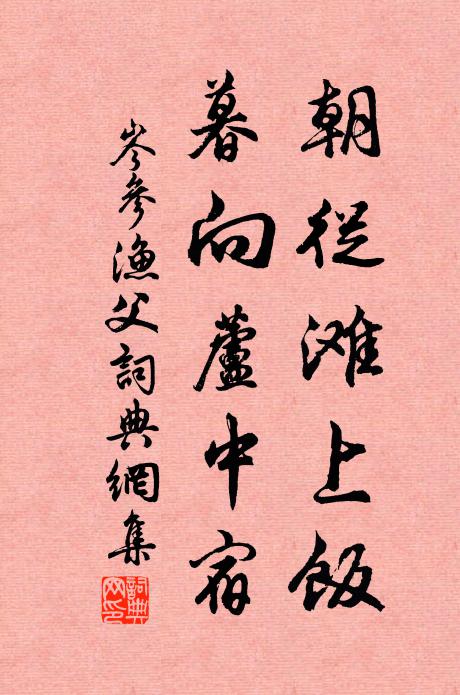 朝從滩上飯
暮向蘆中宿
岑參漁父詞典網集
詞典
网印